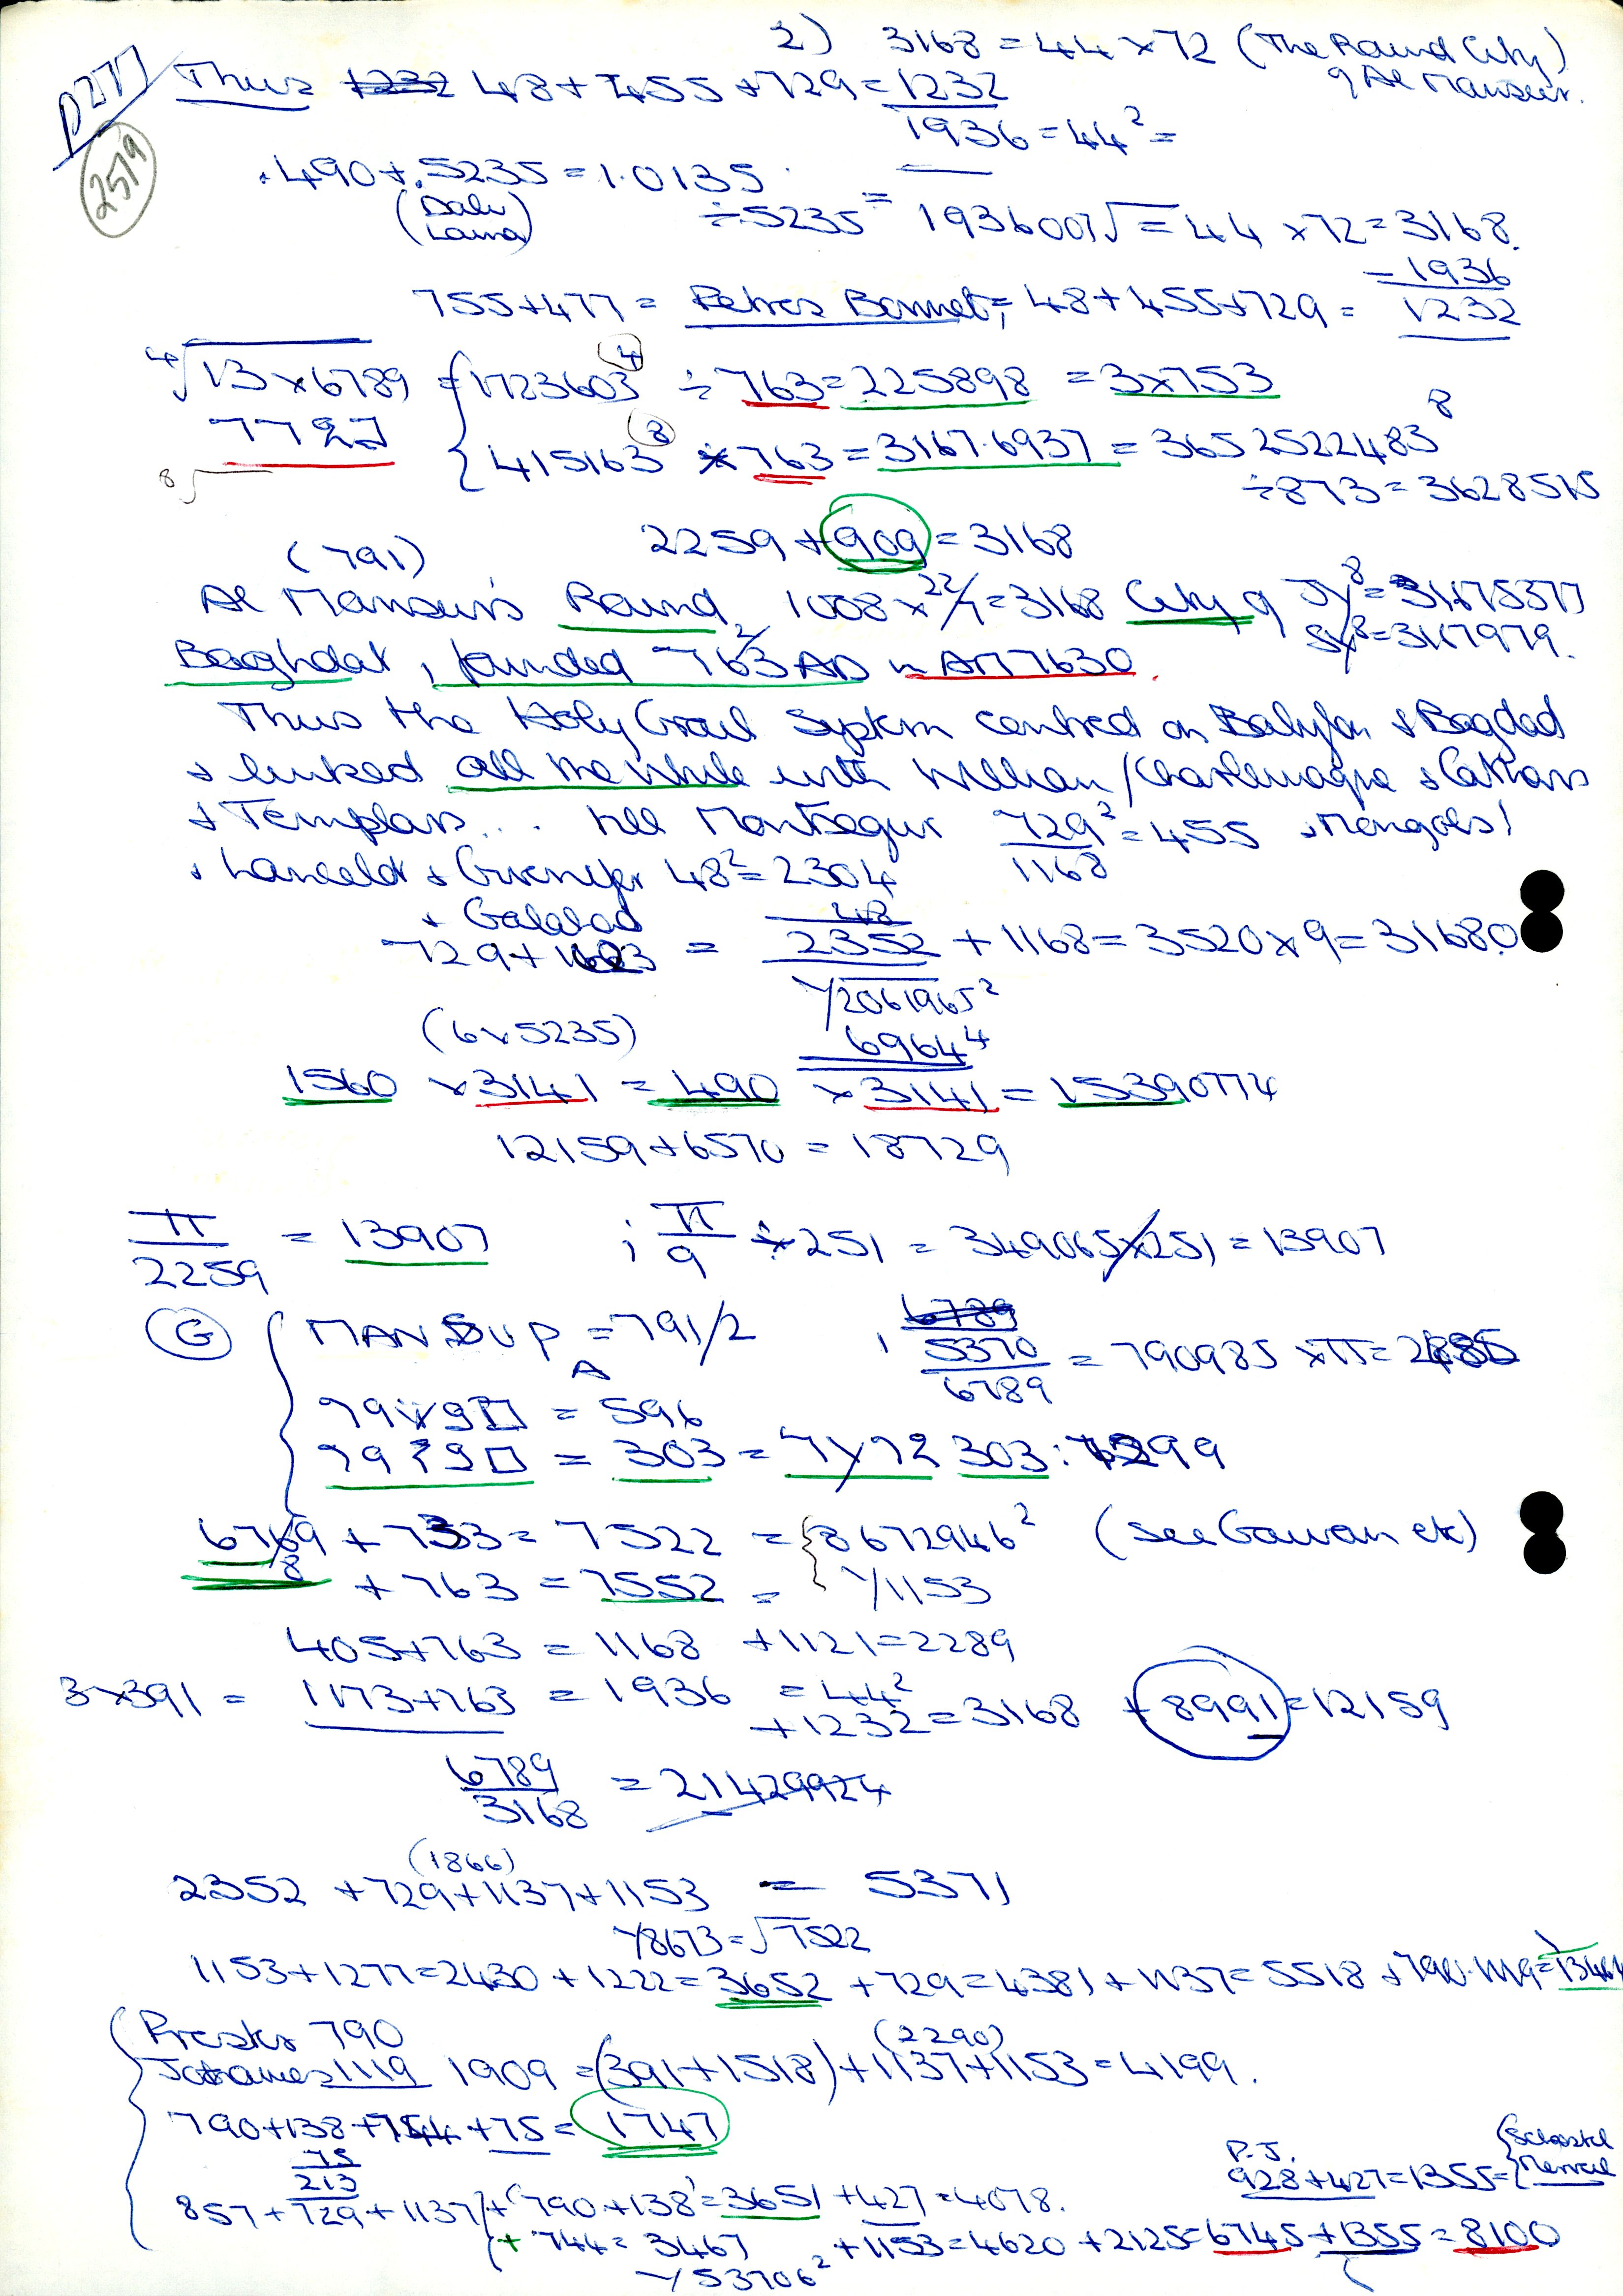 2) 3168 = 44 × 72 (The Round City)
P277 Thus 1232 48 + 455 + 729 = 1232 of Al Mansur.
2519 1936 = 44² =
.490 + .5235 = 1.0135
(Dalai Lama) ÷ 5235 = 1936007 √ = 44 × 72 = 3168.
- 1936
755 + 477 = Petros Bonnet, = 48 + 455 + 729 = 1232
⁴√13 × 6789 = 1723603⁴ ÷ 763 = 225898 = 3 × 753
415163⁸ × 763 = 3167.6937 = 3652522483⁸
8√ ÷ 873 = 3628515
2259 + 909 = 3168
(791)
Al Mansur's Round, 1008 × 22/7 = 3168 City of
Baghdat, founded 763/2 AD in AM 7630.
Thus the Holy Grail System centred on Babylon & Bagdad
& linked all the while with William / Charlemagne & Cathars
& Templars... till Montsegur 729² = 455 & Mongols!
1168
& Lancelot & Guenefer 48² = 2304
+ Galahad 48
729 + 1623 = 2352 + 1168 = 3520 × 9 = 31680.
√2061965²
(6 × 5235) 6964⁴
1560 × 3141 = 490 × 3141 = 15390774
12159 + 6570 = 18729
π/2259 = 13907 ; π/9 ÷ 251 = 349065 × 251 = 13907
G MANSUP = 791/2
A
6789
5370/6789 = 790985 × π =
= 596
= 303 = 7 × 72 303 : 7299
6789 + 733 = 7522 = 8672946² (see Gawan etc)
8 + 763 = 7552 = √1153
405 + 763 = 1168 + 1121 = 2289
3 × 391 = 1173 + 763 = 1936 = 44²
+ 1232 = 3168 + 8991 = 12159
6789/3168 = 21429924
(1866)
2352 + 729 + 1137 + 1153 = 5371
√8673 = √7522
1153 + 1277 = 2430 + 1222 = 3652 + 729 = 4381 + 1137 = 5518 + 790.1119 =
Prester 790
(2290)
Johannes 1119 1909 = (391 + 1518) + 1137 + 1153 = 4199.
790 + 138 + 744 + 75 = 1747
75
213
P.J.
928 + 427 = 1355 =
857 + 729 + 1137 + (790 + 138) = 3651 + 427 = 4078.
+ 744 = 3467 + 1153 = 4620 + 2125 = 6745 + 1355 = 8100
√53706²